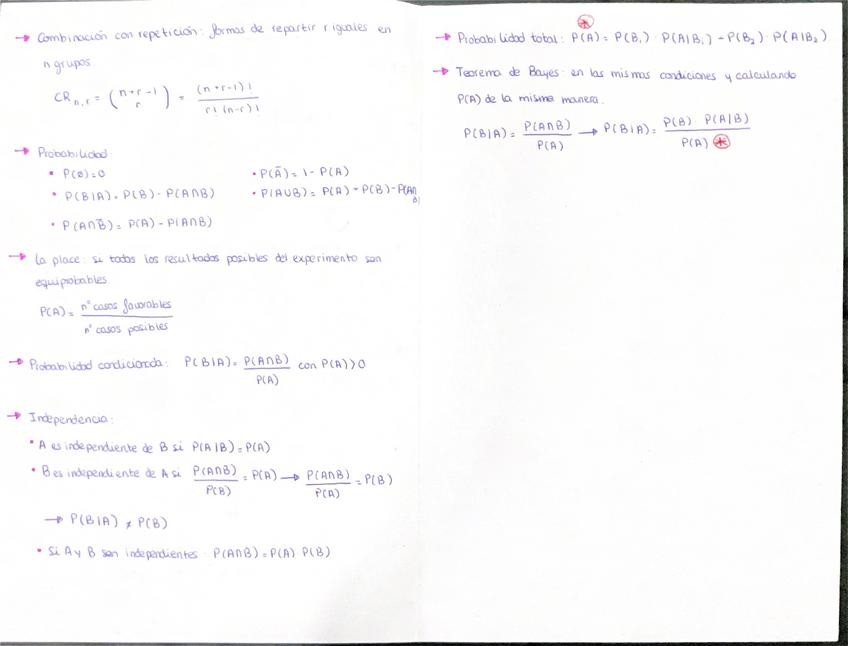 → Combinación con repetición: formas de repartir r iguales en
n grupos
CR n,r = (n+r-1 r) = (n+r-1)! / r! (n-r)!
→ Probabilidad:
• P(∅)=0
• P(Ā) = 1 - P(A)
• P(B|A) = P(B) - P(A∩B)
• P(A∪B) = P(A) + P(B) - P(A∩B)
• P(A∩B̄) = P(A) - P(A∩B)
→ La place: si todos los resultados posibles del experimento son
equiprobables
P(A) = nº casos favorables / nº casos posibles
→ Probabilidad condicionada: P(B|A) = P(A∩B) / P(A) con P(A)>0
→ Independencia:
• A es independiente de B si P(A|B) = P(A)
• B es independiente de A si P(A∩B) / P(B) = P(A) → P(A∩B) / P(A) = P(B)
→ P(B|A) ≠ P(B)
• Si A y B son independientes P(A∩B) = P(A) P(B)
*
→ Probabilidad total: P(A) = P(B₁) · P(A|B₁) + P(B₂) · P(A|B₂)
→ Teorema de Bayes: en las mismas condiciones y calculando
P(A) de la misma manera.
P(B|A) = P(A∩B) / P(A) → P(B|A) = P(B) · P(A|B) / P(A) *